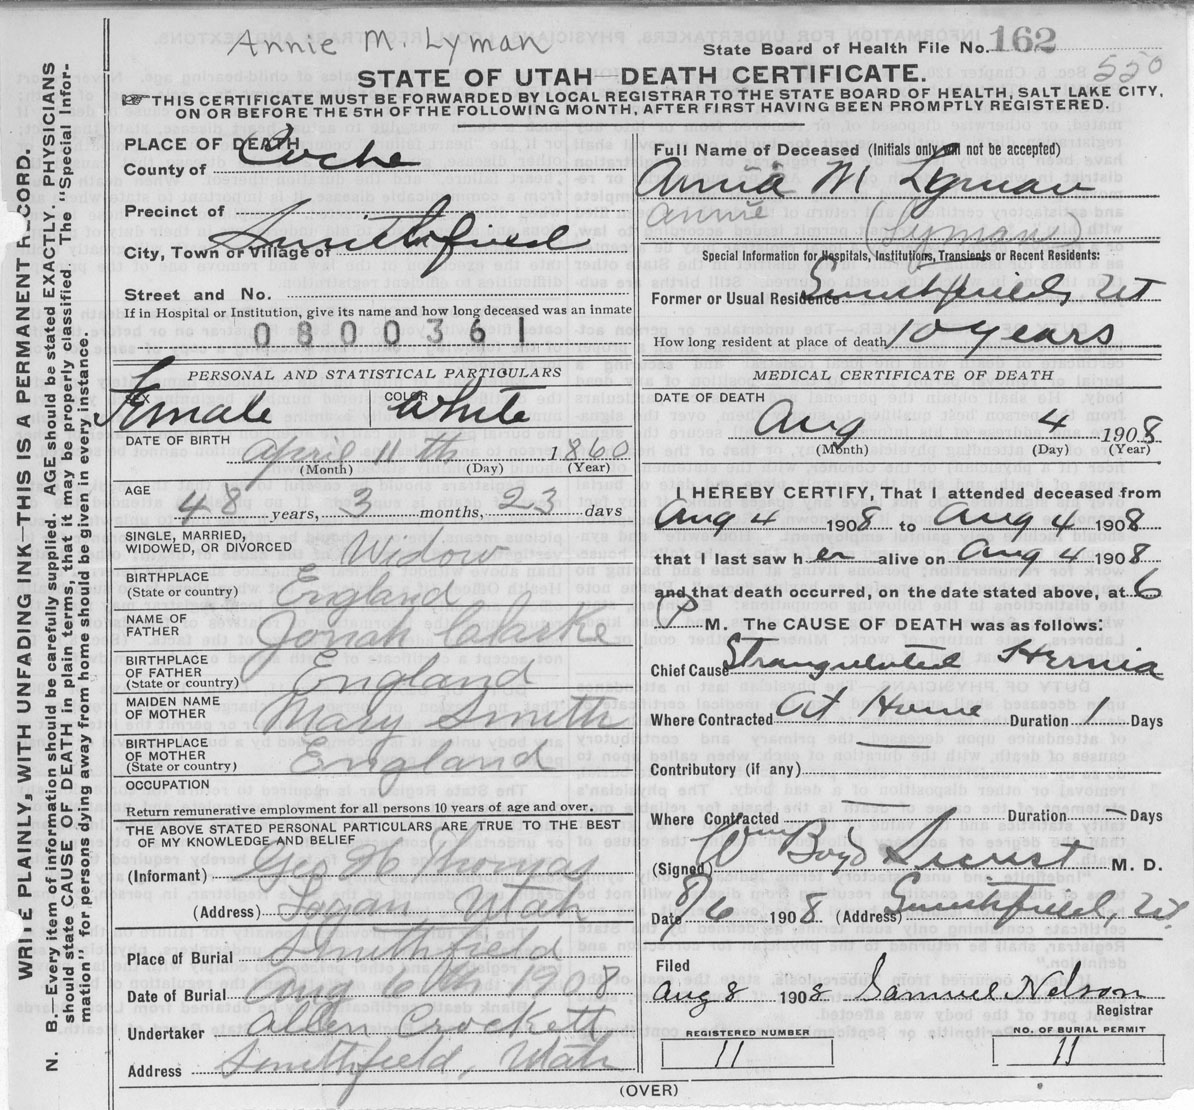 Annie M. Lyman
State Board of Health File No. 162
520
STATE OF UTAH—DEATH CERTIFICATE.
☞THIS CERTIFICATE MUST BE FORWARDED BY LOCAL REGISTRAR TO THE STATE BOARD OF HEALTH, SALT LAKE CITY,
ON OR BEFORE THE 5TH OF THE FOLLOWING MONTH, AFTER FIRST HAVING BEEN PROMPTLY REGISTERED.
WRITE PLAINLY, WITH UNFADING INK—THIS IS A PERMANENT RECORD.
N. B.—Every item of information should be carefully supplied. AGE should be stated EXACTLY. PHYSICIANS
should state CAUSE OF DEATH in plain terms, that it may be properly classified. The "Special Infor-
mation" for persons dying away from home should be given in every instance.
PLACE OF DEATH
County of Cache
Precinct of
City, Town or Village of Smithfield
Street and No.
If in Hospital or Institution, give its name and how long deceased was an inmate
0800361
PERSONAL AND STATISTICAL PARTICULARS
SEX Female COLOR White
DATE OF BIRTH April 11th 1860
(Month) (Day) (Year)
AGE
48 years, 3 months, 23 days
SINGLE, MARRIED,
WIDOWED, OR DIVORCED Widow
BIRTHPLACE
(State or country) England
NAME OF
FATHER Jonah Clarke
BIRTHPLACE
OF FATHER
(State or country) England
MAIDEN NAME
OF MOTHER Mary Smith
BIRTHPLACE
OF MOTHER
(State or country) England
OCCUPATION
Return remunerative employment for all persons 10 years of age and over.
THE ABOVE STATED PERSONAL PARTICULARS ARE TRUE TO THE BEST
OF MY KNOWLEDGE AND BELIEF
(Informant) Geo H Thomas
(Address) Logan, Utah
Place of Burial Smithfield
Date of Burial Aug 6th 1908
Undertaker Allen Crockett
Address Smithfield, Utah
Full Name of Deceased (Initials only will not be accepted)
Annia M Lyman
Annie
(Lyman)
Special Information for Hospitals, Institutions, Transients or Recent Residents:
Former or Usual Residence Smithfield, Ut
How long resident at place of death 10 years
MEDICAL CERTIFICATE OF DEATH
DATE OF DEATH
Aug 4 1908
(Month) (Day) (Year)
I HEREBY CERTIFY, That I attended deceased from
Aug 4 1908 to Aug 4 1908
that I last saw her alive on Aug 4 1908
and that death occurred, on the date stated above, at 6
P M. The CAUSE OF DEATH was as follows:
Chief Cause Strangulated Hernia
Where Contracted At Home Duration 1 Days
Contributory (if any)
Where Contracted Duration Days
(Signed) Boyd M. D.
Date 8/6 1908 (Address) Smithfield, Ut
Filed
Aug 8 1908 Samuel Nelson
Registrar
REGISTERED NUMBER
11
NO. OF BURIAL PERMIT
11
(OVER)